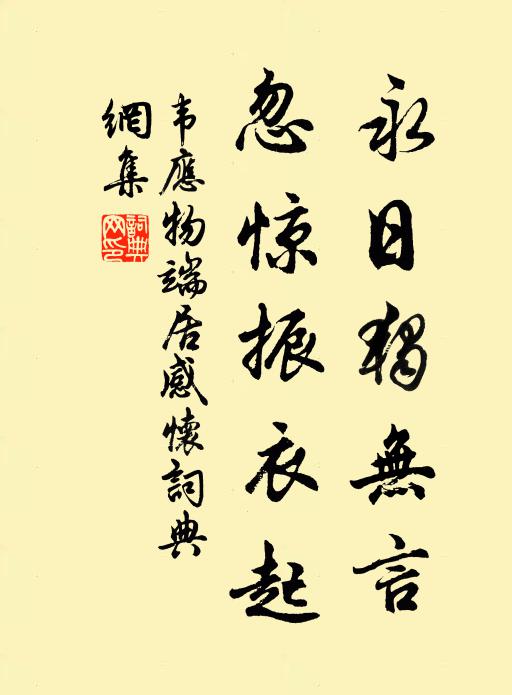 永日獨無言
忽惊振衣起
韦應物端居感懷詞典
網集
詞典
网印